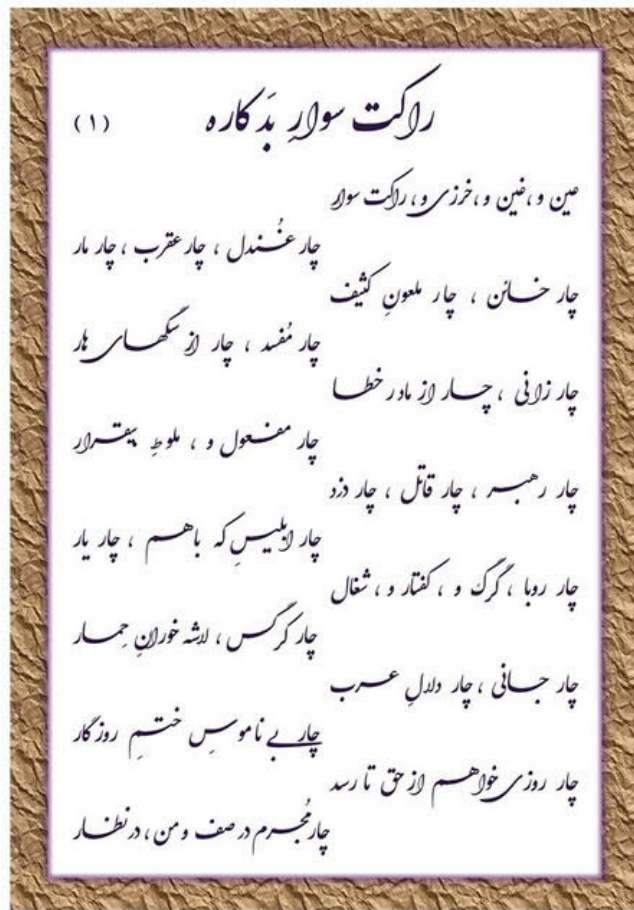 راکت سوارِ بَدکاره
(۱)
عین و، غین و، خرزی و، راکت سوار
چار غُندل ، چار عقرب ، چار مار
چار خائن ، چار ملعونِ کثیف
چار مُفسد ، چار از سگهای هار
چار زانی ، چار از مادر خطا
چار مفعول و ، ملوطِ بیقرار
چار رهبر ، چار قاتل ، چار دزد
چار ابلیسِ که باهم ، چار یار
چار روبا ، گرگ و ، کفتار و ، شغال
چار کرگس ، لاشه خورانِ حِمار
چار جانی ، چار دلالِ عرب
چار بے ناموسِ ختمِ روزگار
چار روزی خواهم از حق تا رسد
چار مُجرم در صف و من ، در نظار